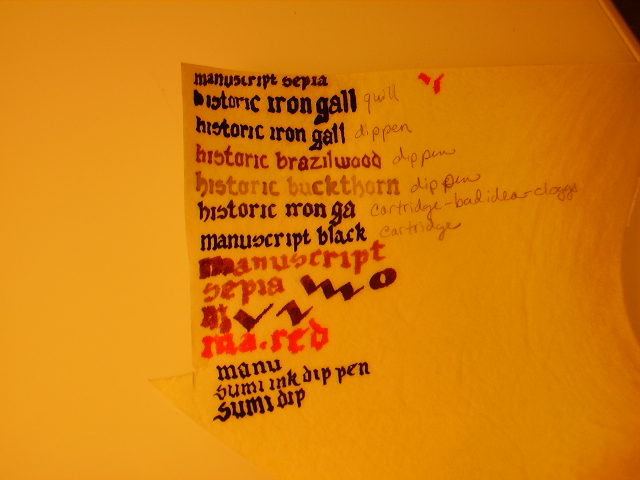 manuscript sepia
historic iron gall quill
historic iron gall dip pen
historic brazilwood dip pen
historic buckthorn dip pen
historic iron ga cartridge-bad idea-cloggs
manuscript black cartridge
manuscript
sepia
ma.red
manu
sumi ink dip pen
sumi dip